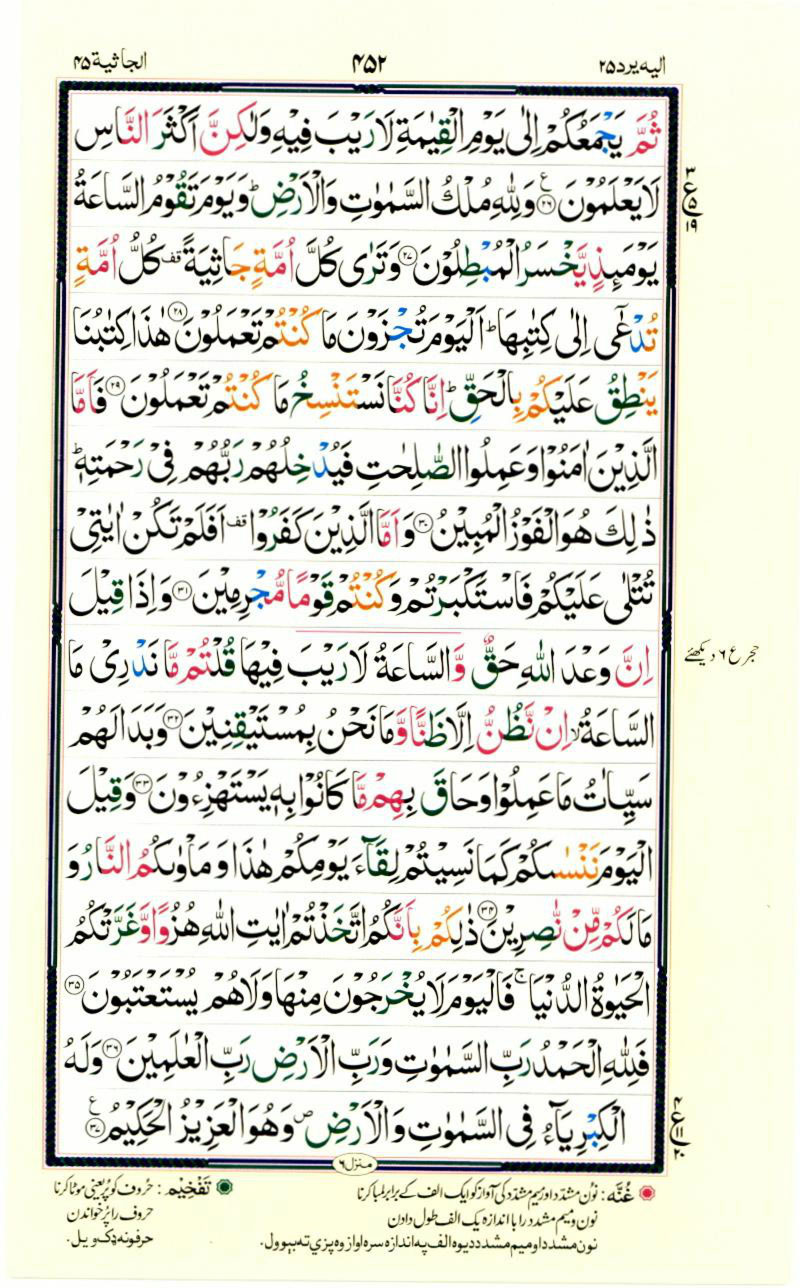 الیه یرد ۲۵ ۴۵۲ الجاثیة ۴۵
ثُمَّ يَجْمَعُكُمْ اِلٰى يَوْمِ الْقِيٰمَةِ لَا رَيْبَ فِيْهِ وَلٰكِنَّ اَكْثَرَ النَّاسِ
لَا يَعْلَمُوْنَ ﴿۲۶﴾ وَلِلّٰهِ مُلْكُ السَّمٰوٰتِ وَالْاَرْضِ ؕ وَيَوْمَ تَقُوْمُ السَّاعَةُ
يَوْمَئِذٍ يَّخْسَرُ الْمُبْطِلُوْنَ ﴿۲۷﴾ وَتَرٰى كُلَّ اُمَّةٍ جَاثِيَةً قف كُلُّ اُمَّةٍ
تُدْعٰٓى اِلٰى كِتٰبِهَا ؕ اَلْيَوْمَ تُجْزَوْنَ مَا كُنْتُمْ تَعْمَلُوْنَ ﴿۲۸﴾ هٰذَا كِتٰبُنَا
يَنْطِقُ عَلَيْكُمْ بِالْحَقِّ ؕ اِنَّا كُنَّا نَسْتَنْسِخُ مَا كُنْتُمْ تَعْمَلُوْنَ ﴿۲۹﴾ فَاَمَّا
الَّذِيْنَ اٰمَنُوْا وَعَمِلُوا الصّٰلِحٰتِ فَيُدْخِلُهُمْ رَبُّهُمْ فِىْ رَحْمَتِهٖ ؕ
ذٰلِكَ هُوَ الْفَوْزُ الْمُبِيْنُ ﴿۳۰﴾ وَاَمَّا الَّذِيْنَ كَفَرُوْا قف اَفَلَمْ تَكُنْ اٰيٰتِىْ
تُتْلٰى عَلَيْكُمْ فَاسْتَكْبَرْتُمْ وَكُنْتُمْ قَوْمًا مُّجْرِمِيْنَ ﴿۳۱﴾ وَاِذَا قِيْلَ
اِنَّ وَعْدَ اللّٰهِ حَقٌّ وَّالسَّاعَةُ لَا رَيْبَ فِيْهَا قُلْتُمْ مَّا نَدْرِىْ مَا
السَّاعَةُ ۙ اِنْ نَّظُنُّ اِلَّا ظَنًّا وَّمَا نَحْنُ بِمُسْتَيْقِنِيْنَ ﴿۳۲﴾ وَبَدَا لَهُمْ
سَيِّاٰتُ مَا عَمِلُوْا وَحَاقَ بِهِمْ مَّا كَانُوْا بِهٖ يَسْتَهْزِءُوْنَ ﴿۳۳﴾ وَقِيْلَ
الْيَوْمَ نَنْسٰىكُمْ كَمَا نَسِيْتُمْ لِقَآءَ يَوْمِكُمْ هٰذَا وَمَاْوٰىكُمُ النَّارُ وَ
مَا لَكُمْ مِّنْ نّٰصِرِيْنَ ﴿۳۴﴾ ذٰلِكُمْ بِاَنَّكُمُ اتَّخَذْتُمْ اٰيٰتِ اللّٰهِ هُزُوًا وَّغَرَّتْكُمُ
الْحَيٰوةُ الدُّنْيَا ۚ فَالْيَوْمَ لَا يُخْرَجُوْنَ مِنْهَا وَلَا هُمْ يُسْتَعْتَبُوْنَ ﴿۳۵﴾
فَلِلّٰهِ الْحَمْدُ رَبِّ السَّمٰوٰتِ وَرَبِّ الْاَرْضِ رَبِّ الْعٰلَمِيْنَ ﴿۳۶﴾ وَلَهُ
الْكِبْرِيَآءُ فِى السَّمٰوٰتِ وَالْاَرْضِ ص وَهُوَ الْعَزِيْزُ الْحَكِيْمُ ﴿۳۷﴾
۳ ع ۵ ۱۹
حجر ع ۶ دیکھئے
۴ ع ۱۱ ۲۰
منزل ۶
غُنَّه : نون مشدد اور میم مشدد کی آواز کو ایک الف کے برابر لمبا کرنا
نون و میم مشدد را با اندازه یک الف طول دادن
نون مشدد او میم مشدد دیوه الف په اندازه سره اواز وه پزې ته بېوول.
تَفْخِيْم : حروف کو پُر یعنی موٹا کرنا
حروف را پُر خواندن
حرفونه ډک ویل.